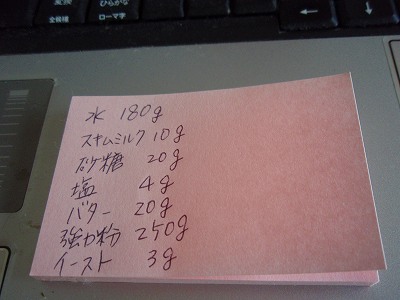 変換
ひらがな
全候補
ローマ字
水 180g
スキムミルク 10g
砂糖 20g
塩 4g
バター 20g
強力粉 250g
イースト 3g